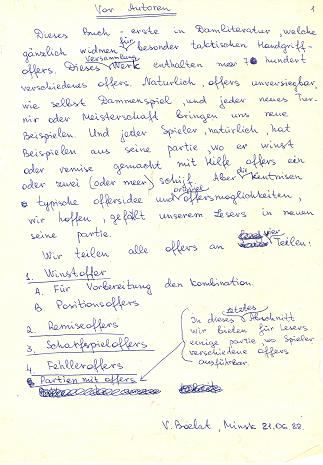 Von Autoren
1
Dieses Buch - erste in Damliteratur, welche
gänzlich widmen für besonder taktischen Handgriff-
offers. Dieses Versammlung Werk enthalten mer 70 hundert
verschiedenes offers. Natürlich, offers unversiegbar,
wie selbst Dammenspiel, und jeder neues Tur-
nir oder Meisterschaft bringen uns neue
Beispielen. Und jeder Spieler, natürlich, hat
Beispielen aus seine partie, wo er winst
oder remise gemacht mit Hilfe offers ein
oder zwei (oder meer) schijf. Aber die Kentnisen
typische offersidee und originel offersmoglichkeiten,
wir hoffen, gefält unserem Lesers in neuen
seine partie.
Wir teilen alle offers an vier Teilen:
1. Winstoffer
A. Für Vorbereitung den kombination.
B. Positionsoffers
2. Remiseoffers
3. Scharfspieloffers
4. Fehlleroffers
Partien mit offers
In dieses letztes Abschnitt
wir bieten für Lesers
einige partie, wo Spieler
verschiedene offers
ausführbar.
V. Boelat, Minsk 21.06.88.